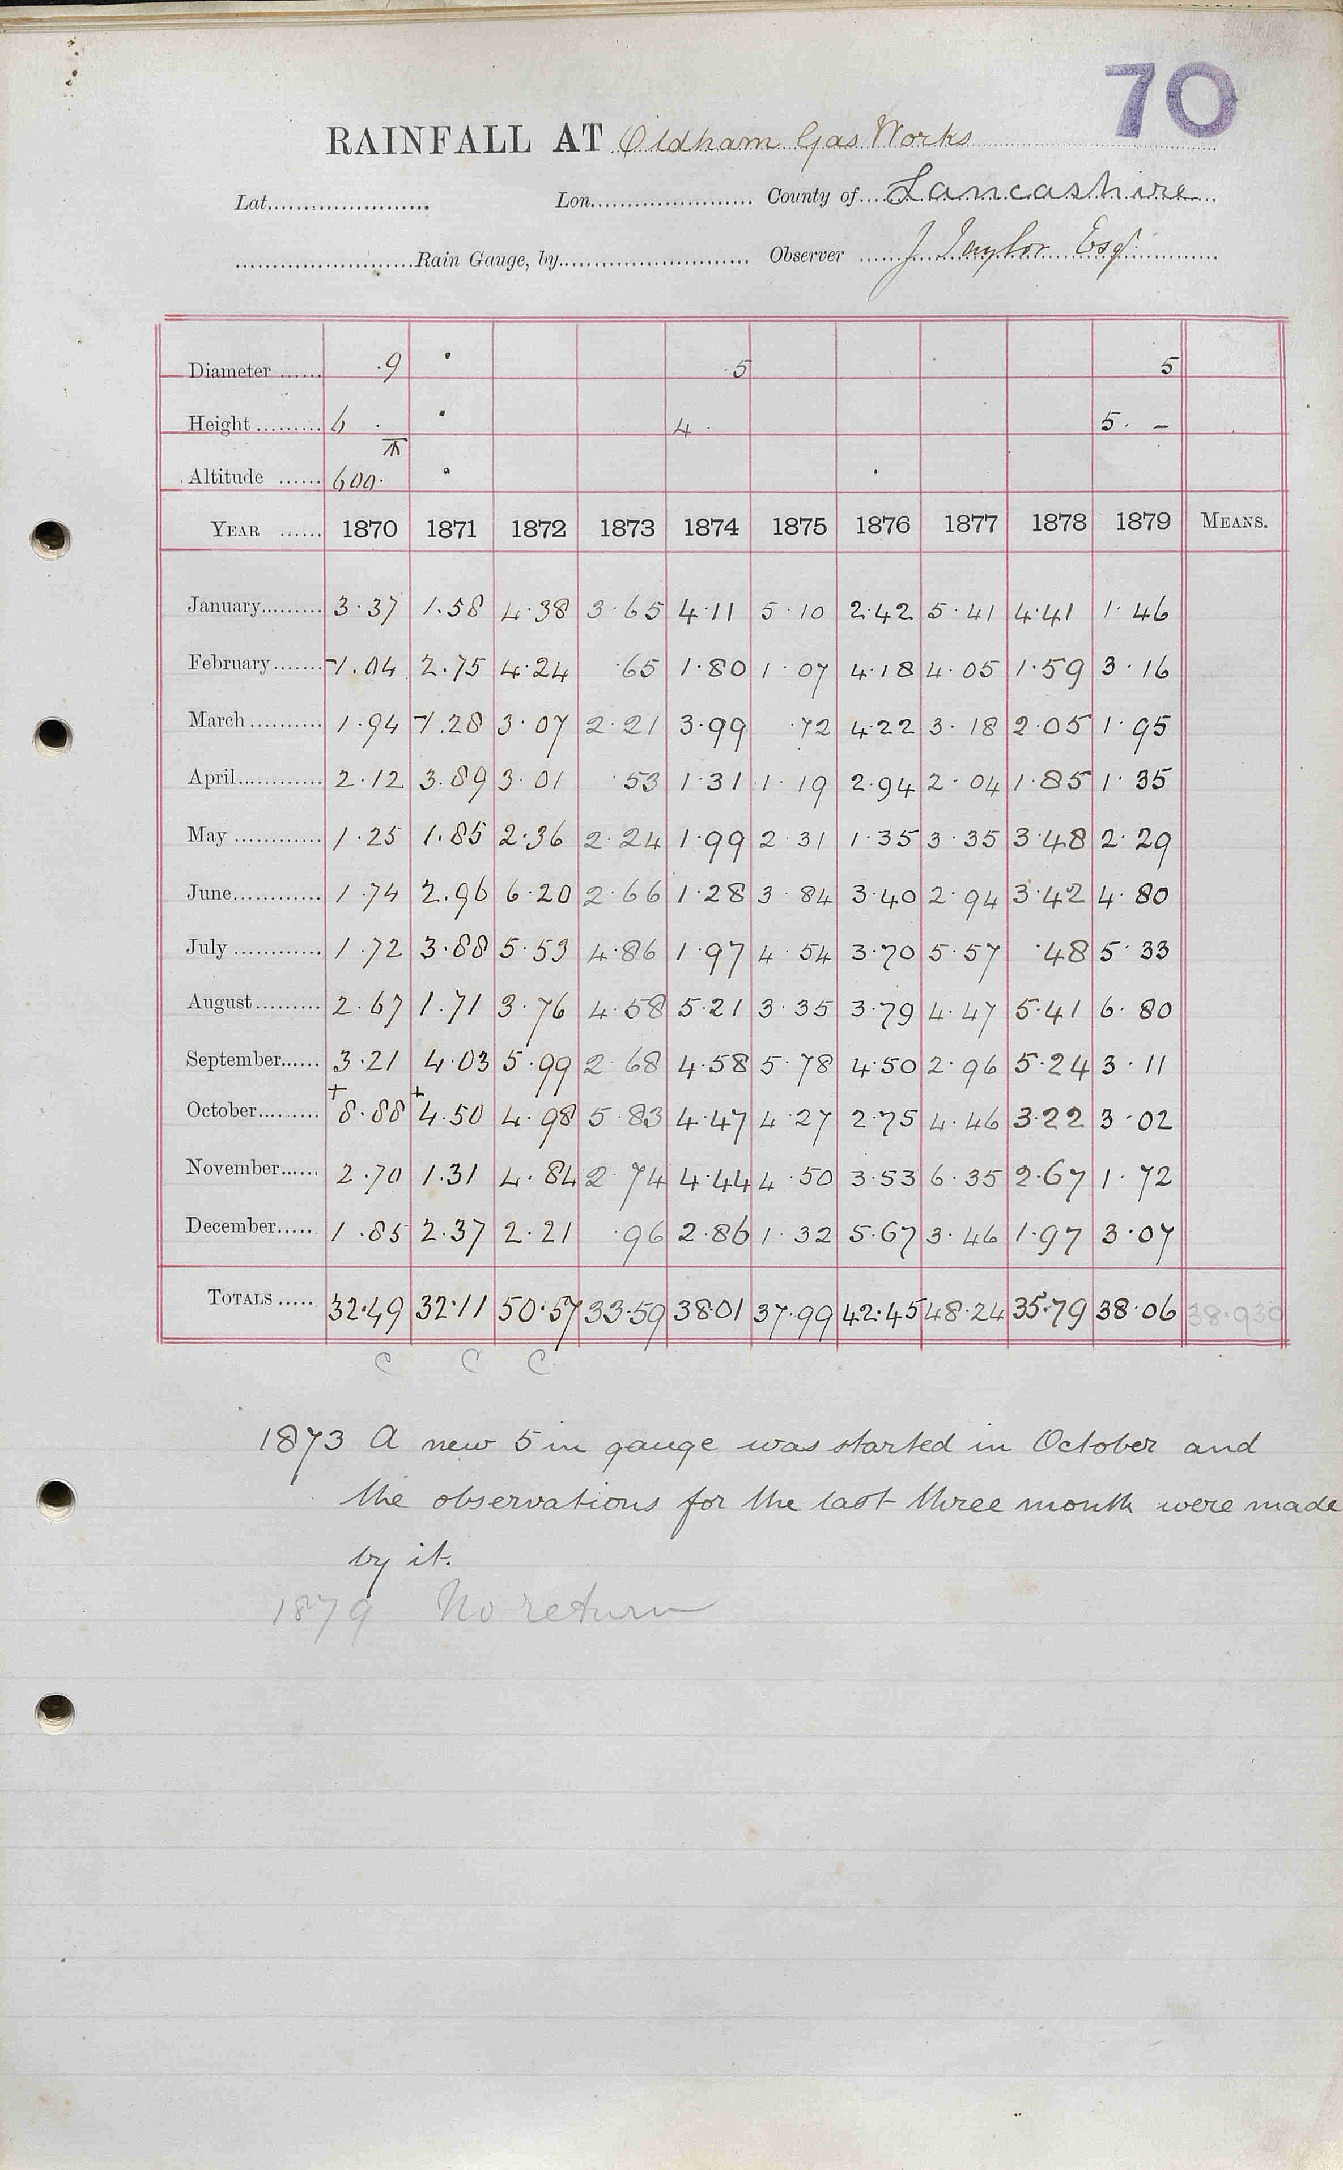 70
RAINFALL AT Oldham Gas Works
Lat. Lon. County of Lancashire
Rain Gauge, by Observer J Taylor Esqr
Diameter 9 5 5
Height 6 4 5 -
Altitude 600
YEAR 1870 1871 1872 1873 1874 1875 1876 1877 1878 1879 MEANS.
January 3.37 1.58 4.38 3.65 4.11 5.10 2.42 5.41 4.41 1.46
February -1.04 2.75 4.24 .65 1.80 1.07 4.18 4.05 1.59 3.16
March 1.94 -1.28 3.07 2.21 3.99 .72 4.22 3.18 2.05 1.95
April 2.12 3.89 3.01 .53 1.31 1.19 2.94 2.04 1.85 1.35
May 1.25 1.85 2.36 2.24 1.99 2.31 1.35 3.35 3.48 2.29
June 1.74 2.96 6.20 2.66 1.28 3.84 3.40 2.94 3.42 4.80
July 1.72 3.88 5.53 4.86 1.97 4.54 3.70 5.57 .48 5.33
August 2.67 1.71 3.76 4.58 5.21 3.35 3.79 4.47 5.41 6.80
September 3.21 4.03 5.99 2.68 4.58 5.78 4.50 2.96 5.24 3.11
October +8.88 +4.50 4.98 5.83 4.47 4.27 2.75 4.46 3.22 3.02
November 2.70 1.31 4.84 2.74 4.44 4.50 3.53 6.35 2.67 1.72
December 1.85 2.37 2.21 .96 2.86 1.32 5.67 3.46 1.97 3.07
TOTALS 32.49 32.11 50.57 33.59 38.01 37.99 42.45 48.24 35.79 38.06 38.930
C C C
1873 A new 5 in gauge was started in October and
the observations for the last three month were made
by it.
1879 No return